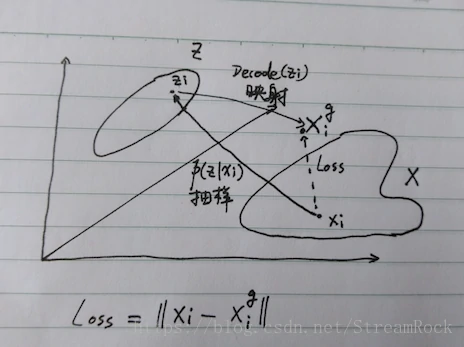 Z
Zi
Decode(Zi)
映射
Xi^g
p(z|xi)
抽样
Loss
X
xi
Loss = ||xi - xi^g||
https://blog.csdn.net/StreamRock